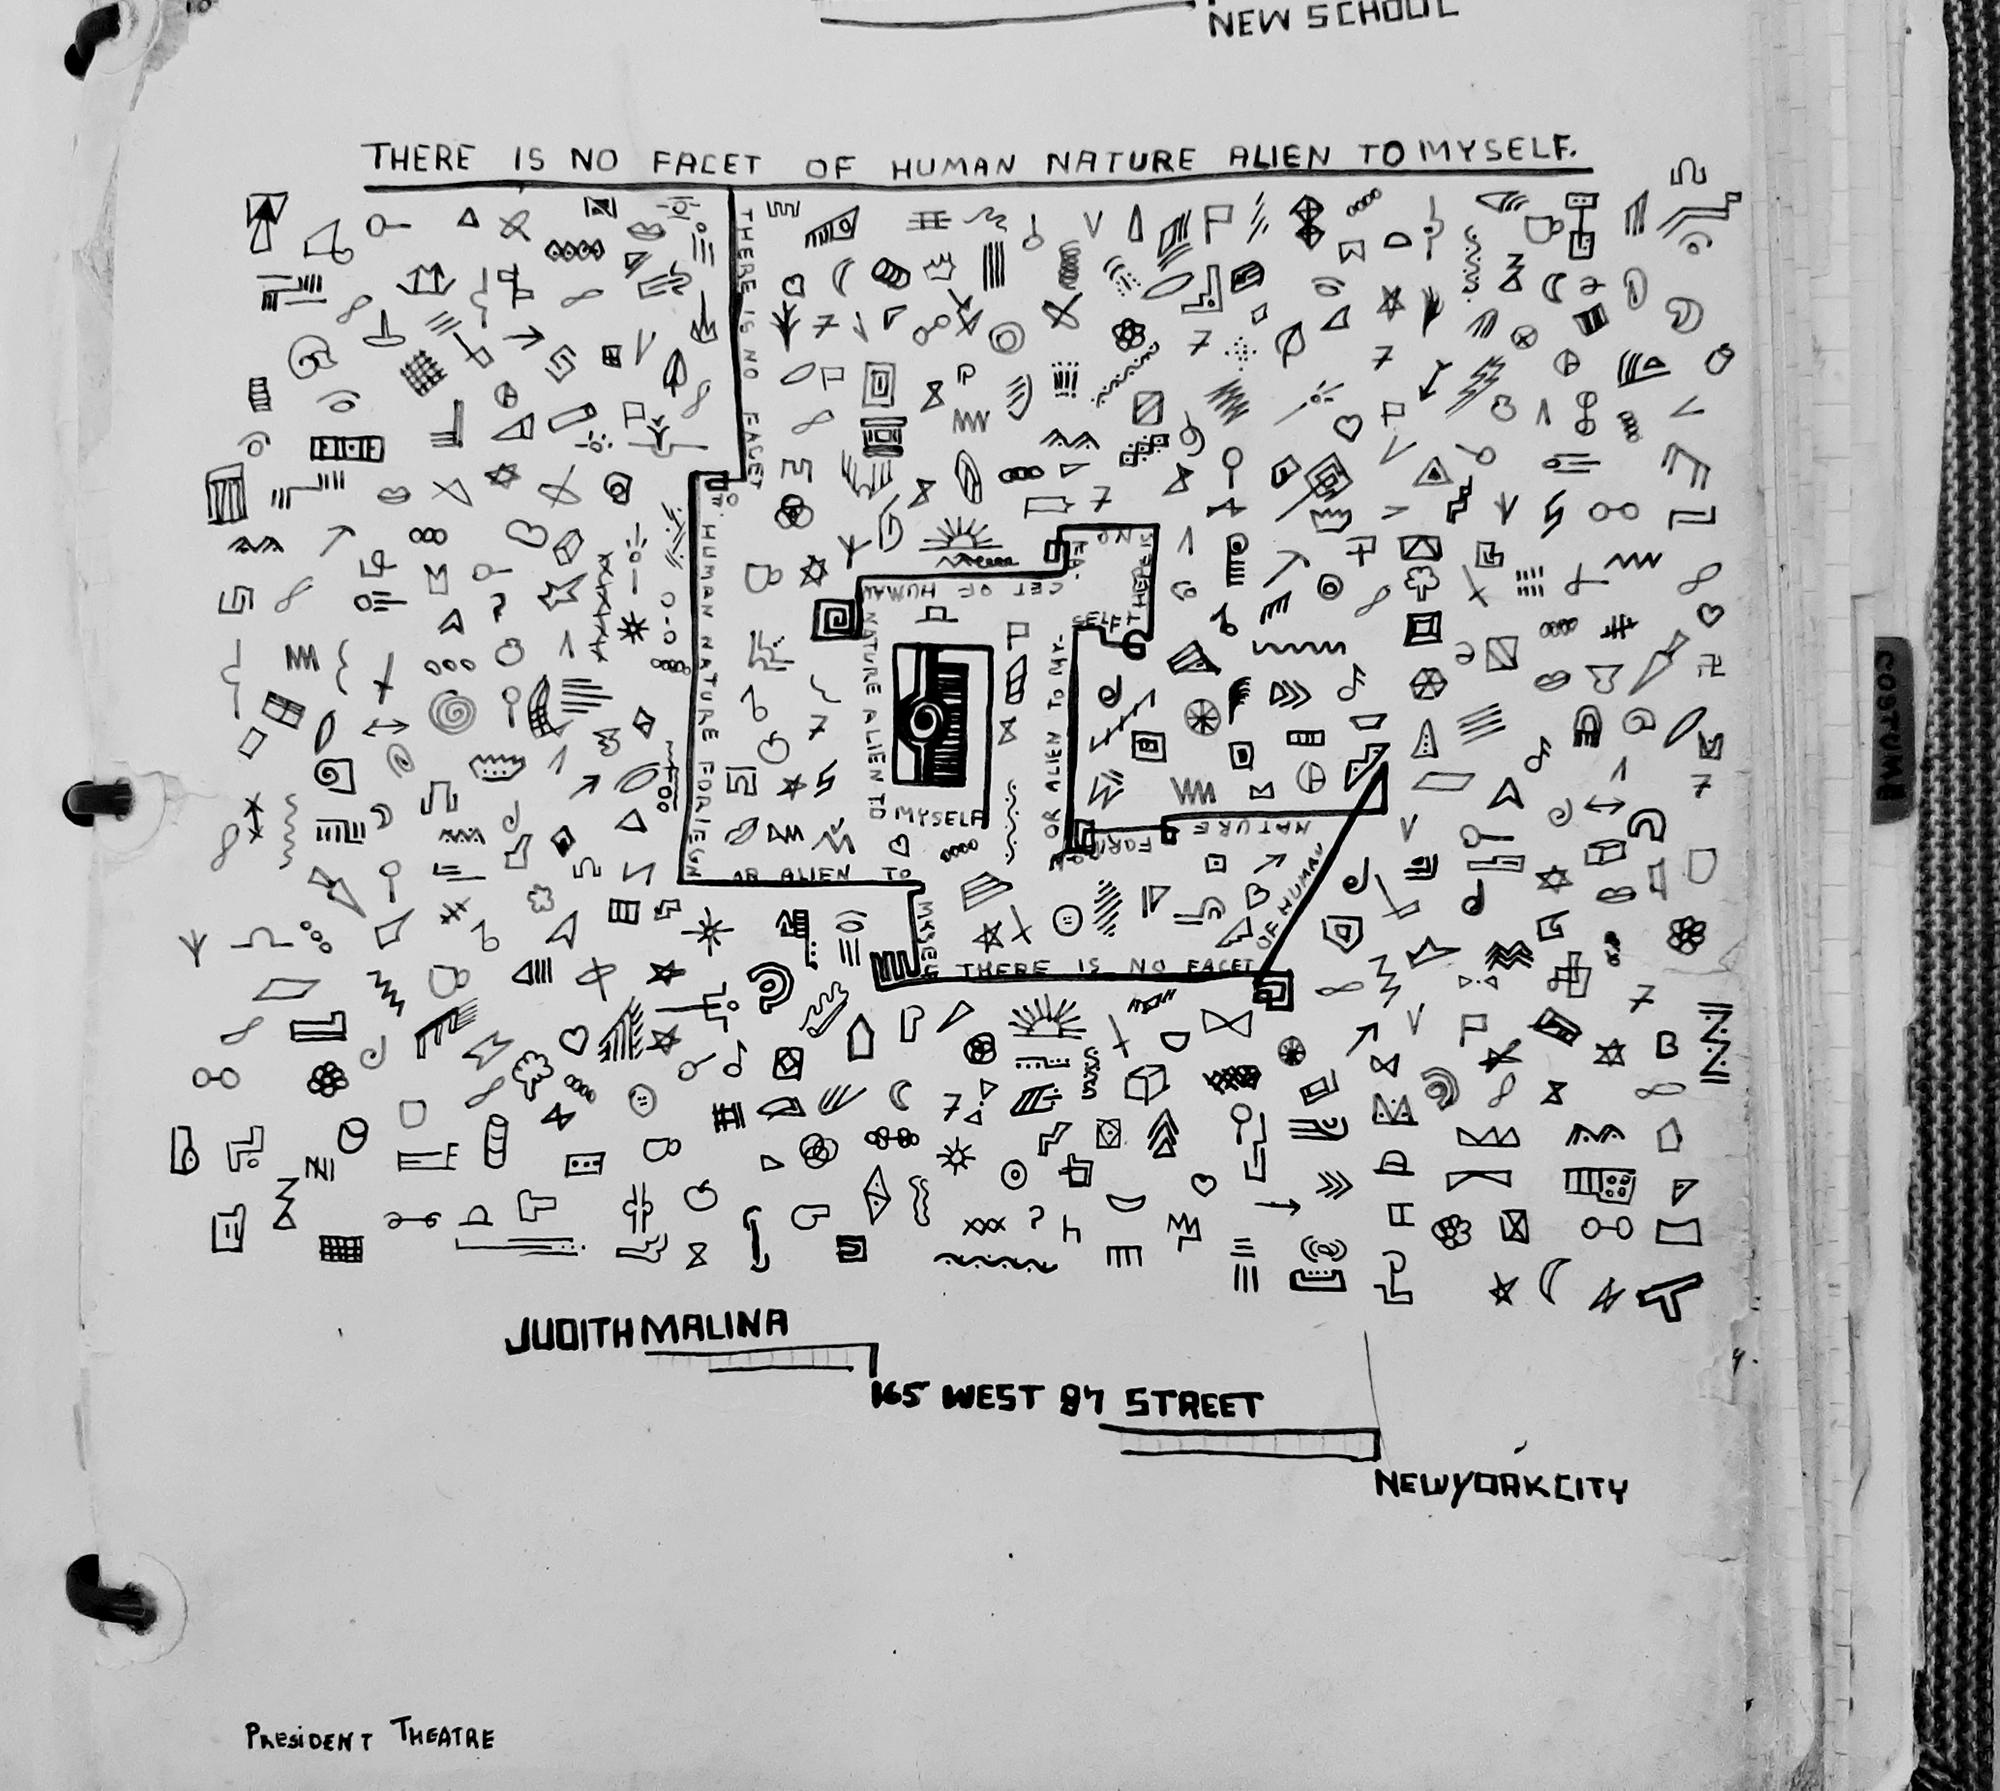 NEW SCHOOL
THERE IS NO FACET OF HUMAN NATURE ALIEN TO MYSELF.
THERE IS NO FACET
OF HUMAN NATURE FORIEGN
OR ALIEN TO
MYSELF
THERE IS NO FACET
OF HUMAN
NATURE
FORIGN
OR ALIEN TO MY-
SELF
THERE
IS
NO
FA-
CET OF HUMAN
NATURE ALIEN TO
MYSELF
COSTUME
JUDITH MALINA
165 WEST 87 STREET
NEW YORK CITY
PRESIDENT THEATRE